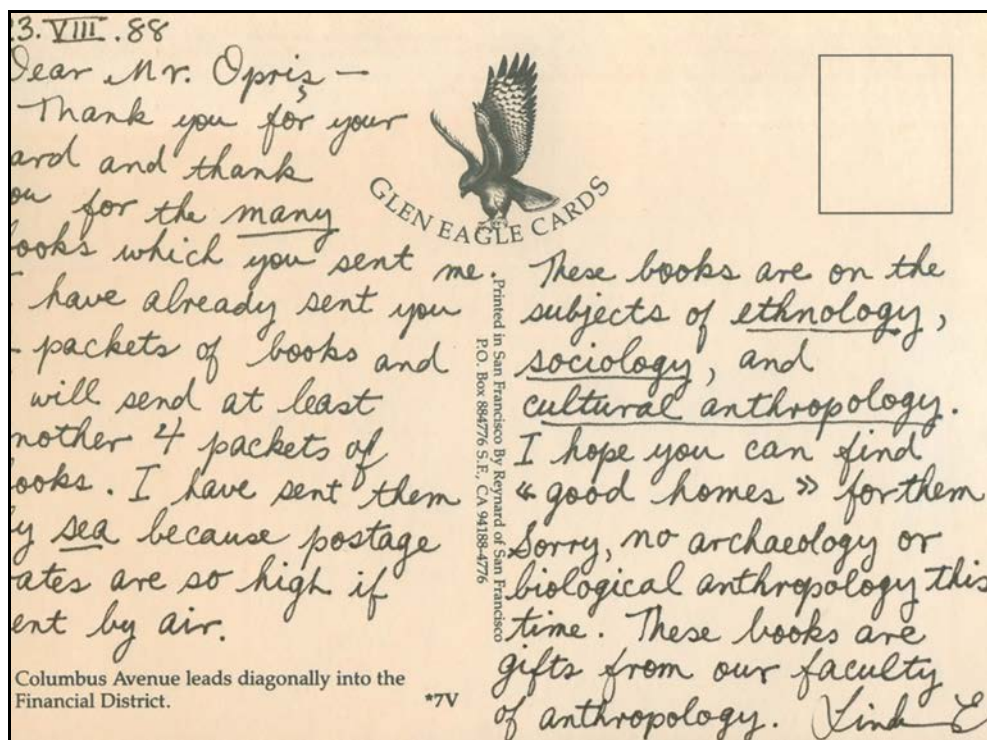 3.VIII.88
Dear Mr. Opriș —
Thank you for your
ard and thank
ou for the many
ooks which you sent me.
have already sent you
packets of books and
will send at least
nother 4 packets of
ooks. I have sent them
y sea because postage
ates are so high if
ent by air.
Columbus Avenue leads diagonally into the
Financial District.
*7V
GLEN EAGLE CARDS
Printed in San Francisco By Reynard of San Francisco
P.O. Box 884776 S.F., CA 94188-4776
These books are on the
subjects of ethnology,
sociology, and
cultural anthropology.
I hope you can find
« good homes » for them
Sorry, no archaeology or
biological anthropology this
time. These books are
gifts from our faculty
of anthropology. Linda E